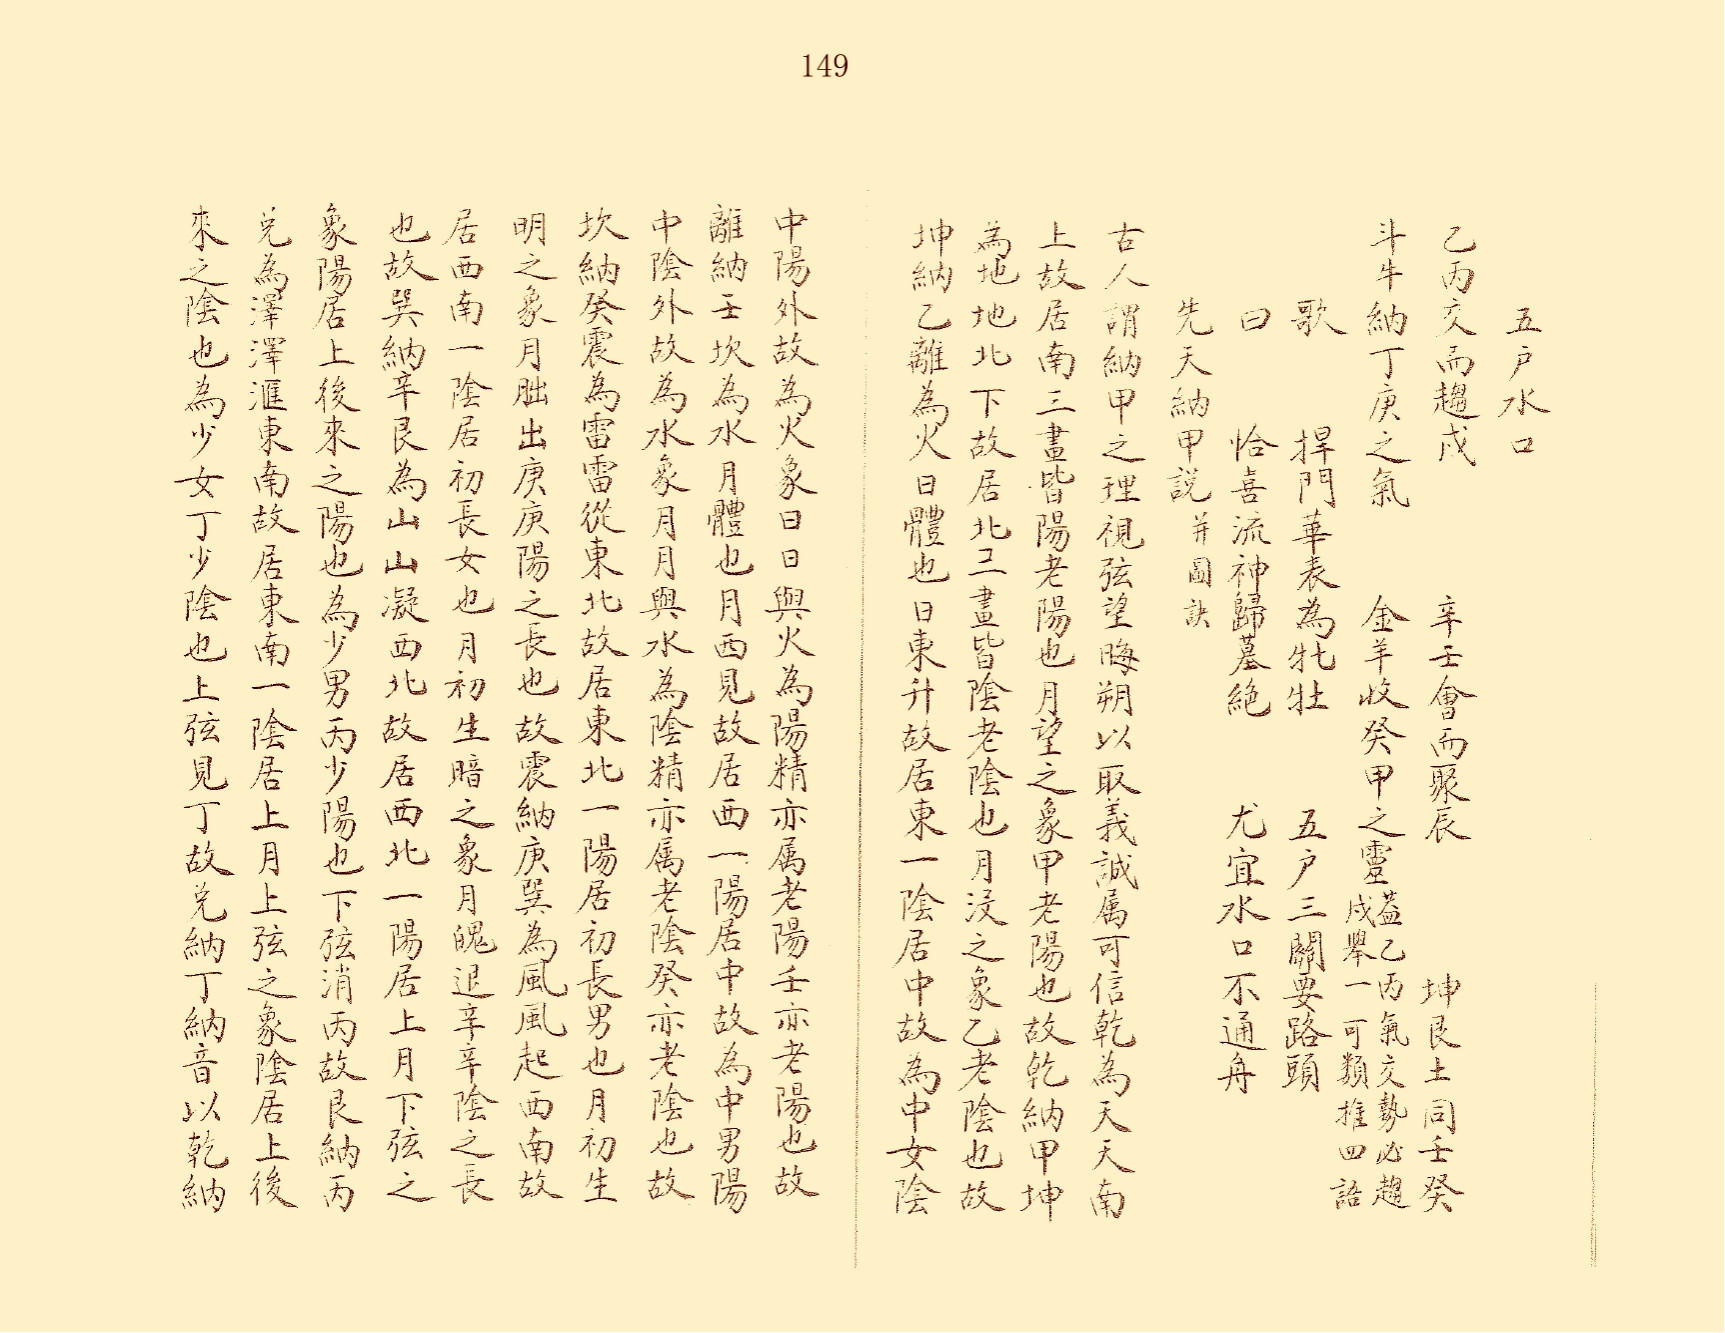 149
五戶水口
乙丙交而趨戌 辛壬會而聚辰 坤艮土同壬癸
斗牛納丁庚之氣 金羊收癸甲之靈 葢乙丙氣交勢必趨戌舉一可類推四語
歌 捍門華表為牝牡 五戶三關要路頭
曰 恰喜流神歸墓絕 尤宜水口不通舟
先天納甲説 并圖訣
古人謂納甲之理視弦望晦朔以取義誠属可信乾為天天南
上故居南三畫皆陽老陽也月望之象甲老陽也故乾納甲坤
為地地北下故居北三畫皆陰老陰也月沒之象乙老陰也故
坤納乙離為火日體也日東升故居東一陰居中故為中女陰
中陽外故為火象日日與火為陽精亦属老陽壬亦老陽也故
離納壬坎為水月體也月西見故居西一陽居中故為中男陽
中陰外故為水象月月與水為陰精亦属老陰癸亦老陰也故
坎納癸震為雷雷從東北故居東北一陽居初長男也月初生
明之象月朏出庚庚陽之長也故震納庚巽為風風起西南故
居西南一陰居初長女也月初生暗之象月魄退辛辛陰之長
也故巽納辛艮為山山凝西北故居西北一陽居上月下弦之
象陽居上後來之陽也為少男丙少陽也下弦消丙故艮納丙
兌為澤澤滙東南故居東南一陰居上月上弦之象陰居上後
來之陰也為少女丁少陰也上弦見丁故兌納丁納音以乾納